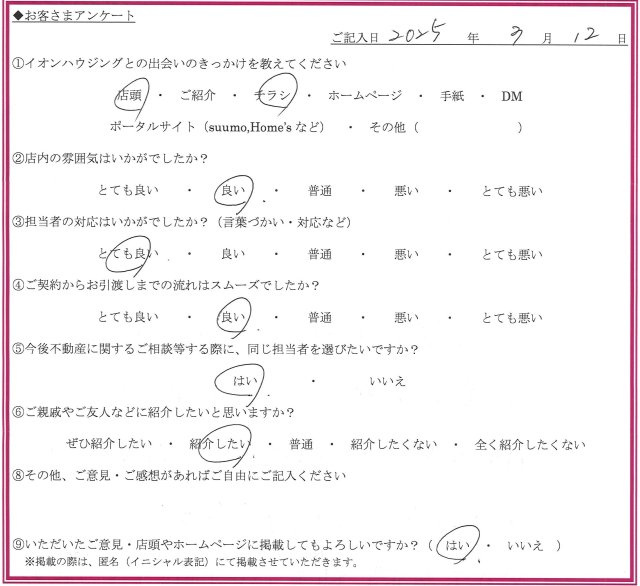 ◆お客さまアンケート
ご記入日 2025 年 3 月 12 日
①イオンハウジングとの出会いのきっかけを教えてください
店頭 ・ ご紹介 ・ チラシ ・ ホームページ ・ 手紙 ・ DM
ポータルサイト（suumo,Home's など） ・ その他（ ）
②店内の雰囲気はいかがでしたか？
とても良い ・ 良い ・ 普通 ・ 悪い ・ とても悪い
③担当者の対応はいかがでしたか？（言葉づかい・対応など）
とても良い ・ 良い ・ 普通 ・ 悪い ・ とても悪い
④ご契約からお引渡しまでの流れはスムーズでしたか？
とても良い ・ 良い ・ 普通 ・ 悪い ・ とても悪い
⑤今後不動産に関するご相談等する際に、同じ担当者を選びたいですか？
はい ・ いいえ
⑥ご親戚やご友人などに紹介したいと思いますか？
ぜひ紹介したい ・ 紹介したい ・ 普通 ・ 紹介したくない ・ 全く紹介したくない
⑧その他、ご意見・ご感想があればご自由にご記入ください
⑨いただいたご意見・店頭やホームページに掲載してもよろしいですか？（ はい ・ いいえ ）
※掲載の際は、匿名（イニシャル表記）にて掲載させていただきます。